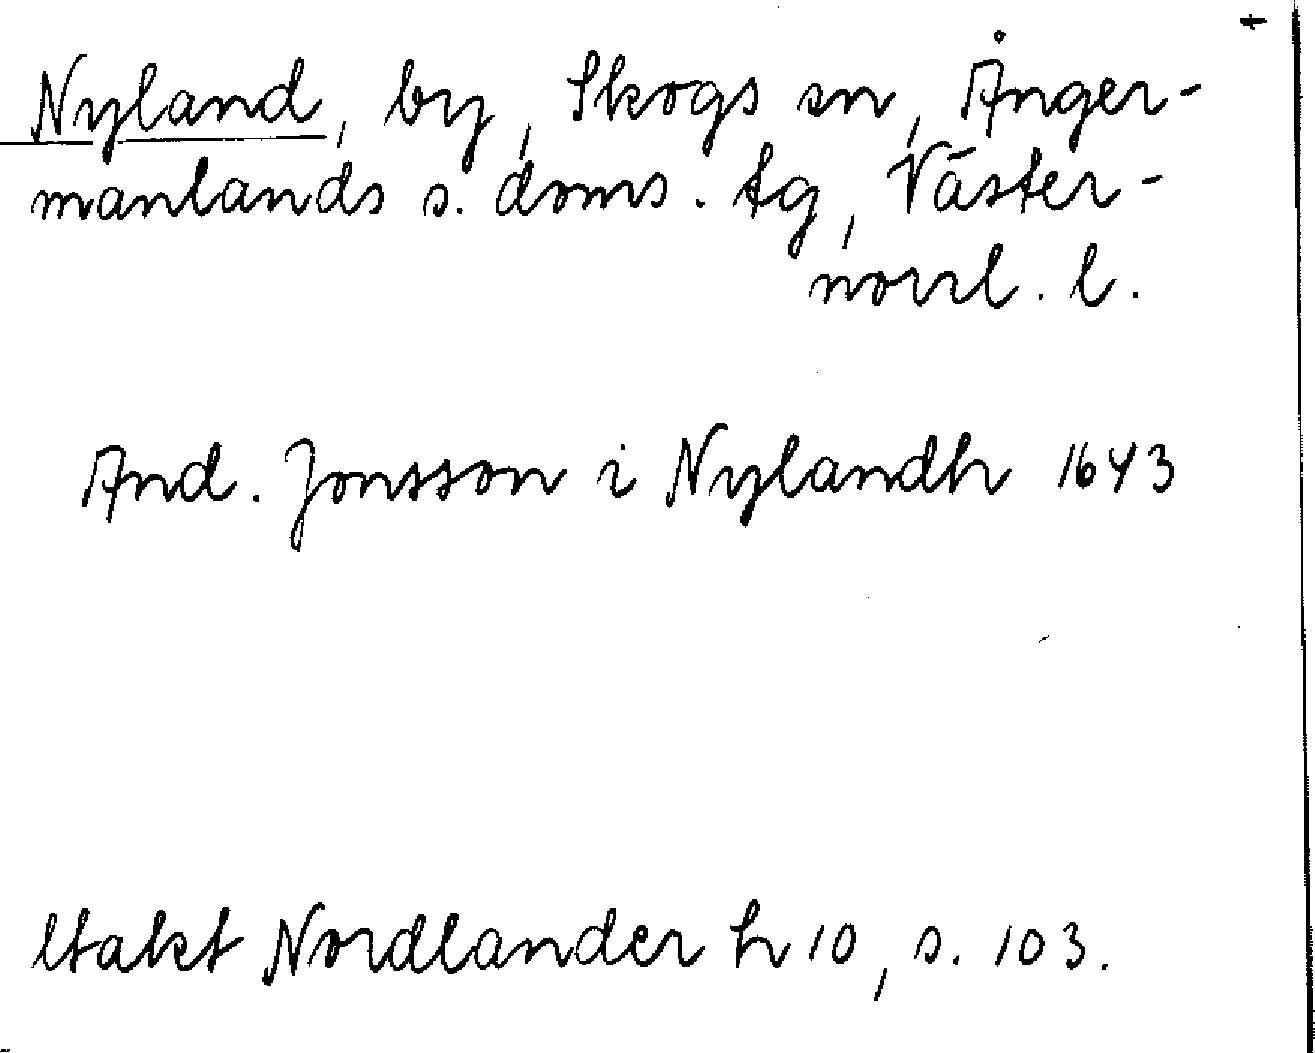 Nyland, by, Skogs sn, Ånger-
manlands s. doms. tg, Väster-
norrl. l.
And. Jonsson i Nylandh 1643
ltakt Nordlander h 10, s. 103.